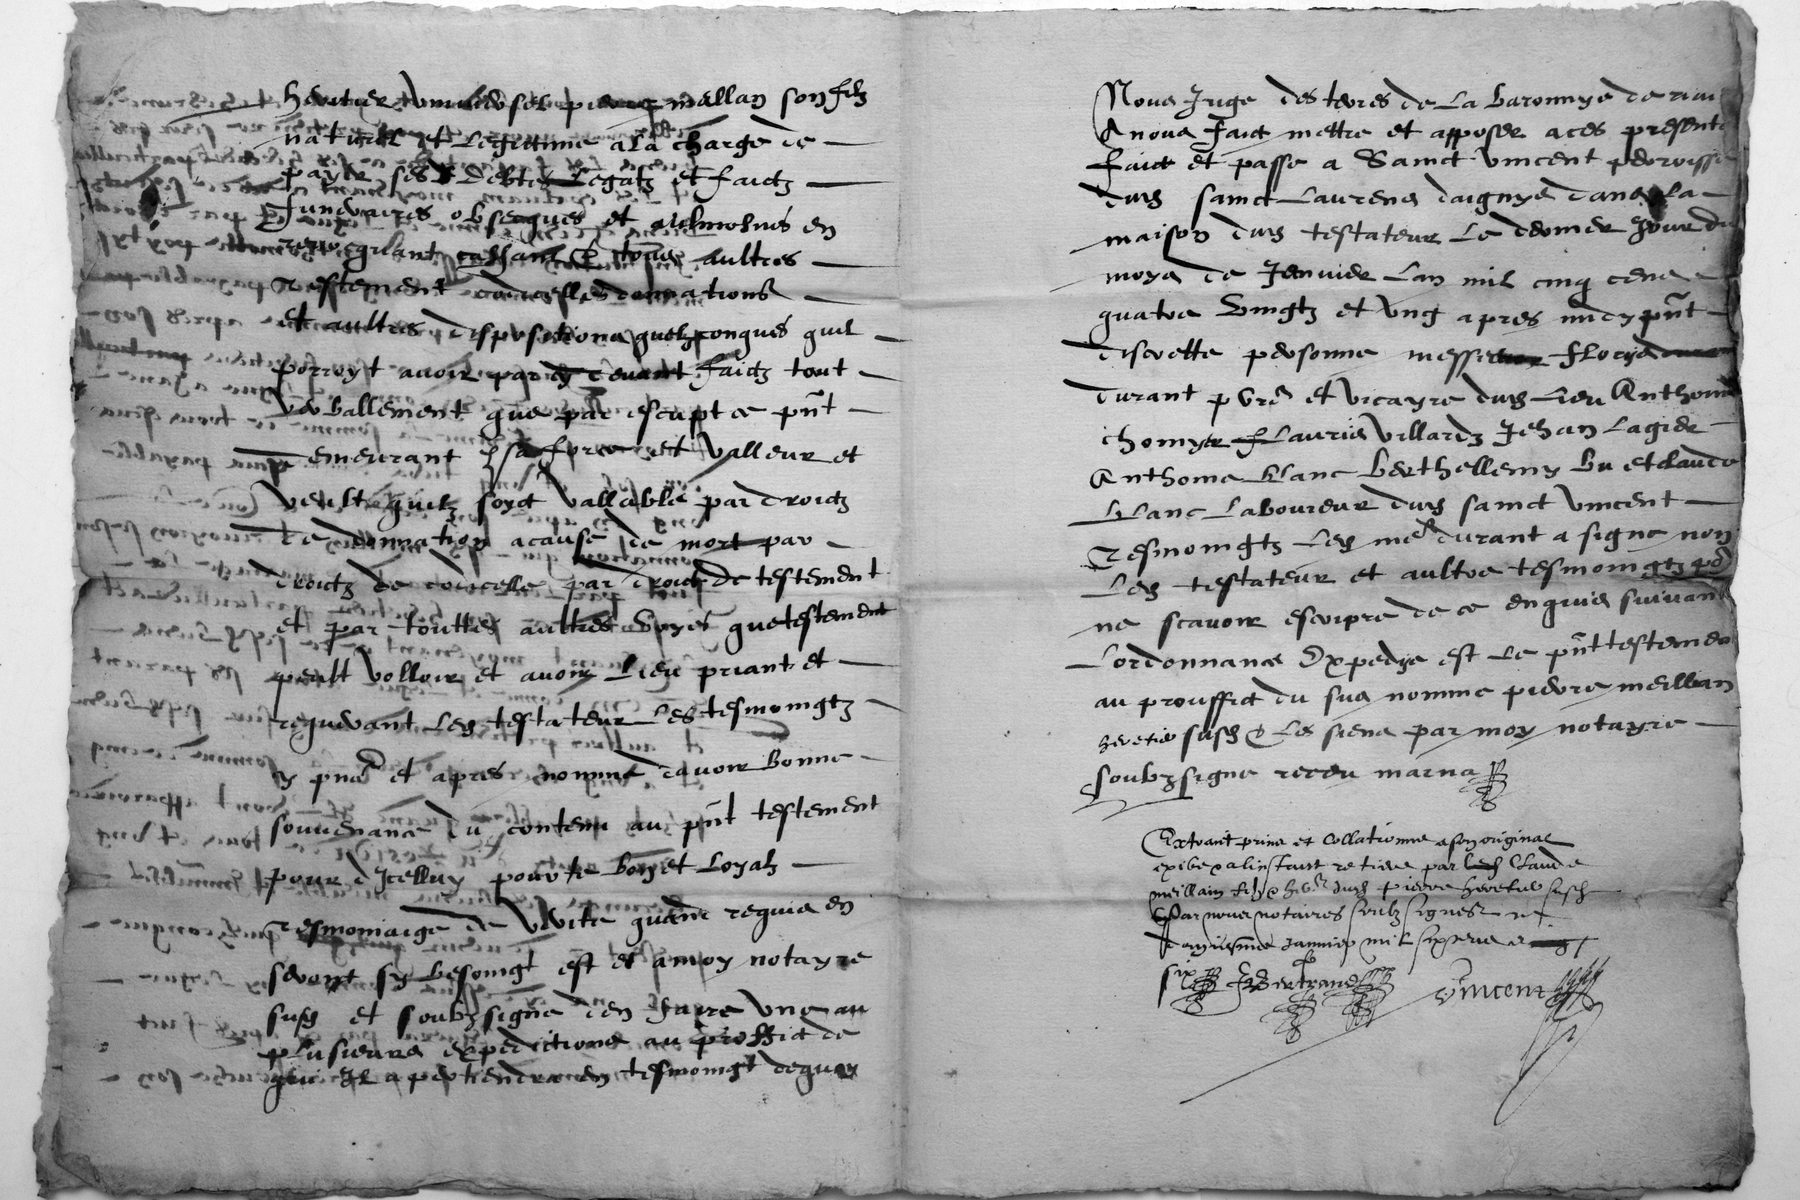 heritier universel pierre meillan son filz
naturel et legittime a la charge de
payer ses debtes legatz et faictz
funeraires obseques et aulmosnes en
revocquant cassant et tous aultres
testement codicelles donnations
et aultres dispositions quelzconques quil
porroyt avoir par cy devant faictz tant
verballement que par escript ce pnt
demeurant en sa force et valleur et
veult quilz soyt vallable par droictz
de donnation a cause de mort par
droictz de codicelle par droict de testement
et par touttes aultres voyes que testement
peult valloir et avoir lieu priant et
requerant led testateur les tesmoingtz
y pnts et apres nomme davoir bonne
souvenance du contenu au pnt testement
pour dicelluy porter bon et loyal
tesmoniaige de verite quand requis en
seront sy besoingt est et a moy notayre
susd et soubzsigne den faire une au
plusieurs expeditions au proffict de
qui il apertiendra en tesmoingt dequoy
Nous Juge des terres de la baronnye de
a nous faict mettre et apposer a ces present
faict et passe a Sainct Vincent perroisse
dud sainct Laurens daignye dans la
maison dud testateur le dernier jour du
moys de Jenvier lan mil cinq cens
quatre vingtz et ung apres midy pnt
discrette personne messire florys
durant pbre et vicayre dud lieu Anthoine
chomyer flauris villardz Jehan lagier
Anthoine blanc berthellemy bu et claude
blanc laboureur dud sainct vincent
tesmoingtz led mer durant a signe non
led testateur et aultre tesmoingtz por
ne scavoir escripre de ce enquis suivant
lordonnance Expedye est le pnt testement
au prouffict du sus nomme pierre meillan
heretier susd et les siens par moy notayre
soubzsigne receu marna
Extraict prins et collationne a son original
exibe et a linstant retire par Claude
meillain filz et her dud pierre heretier susd
Par nous notaires soubz signes
jannier mil six cens
six J Bertrand Vincent